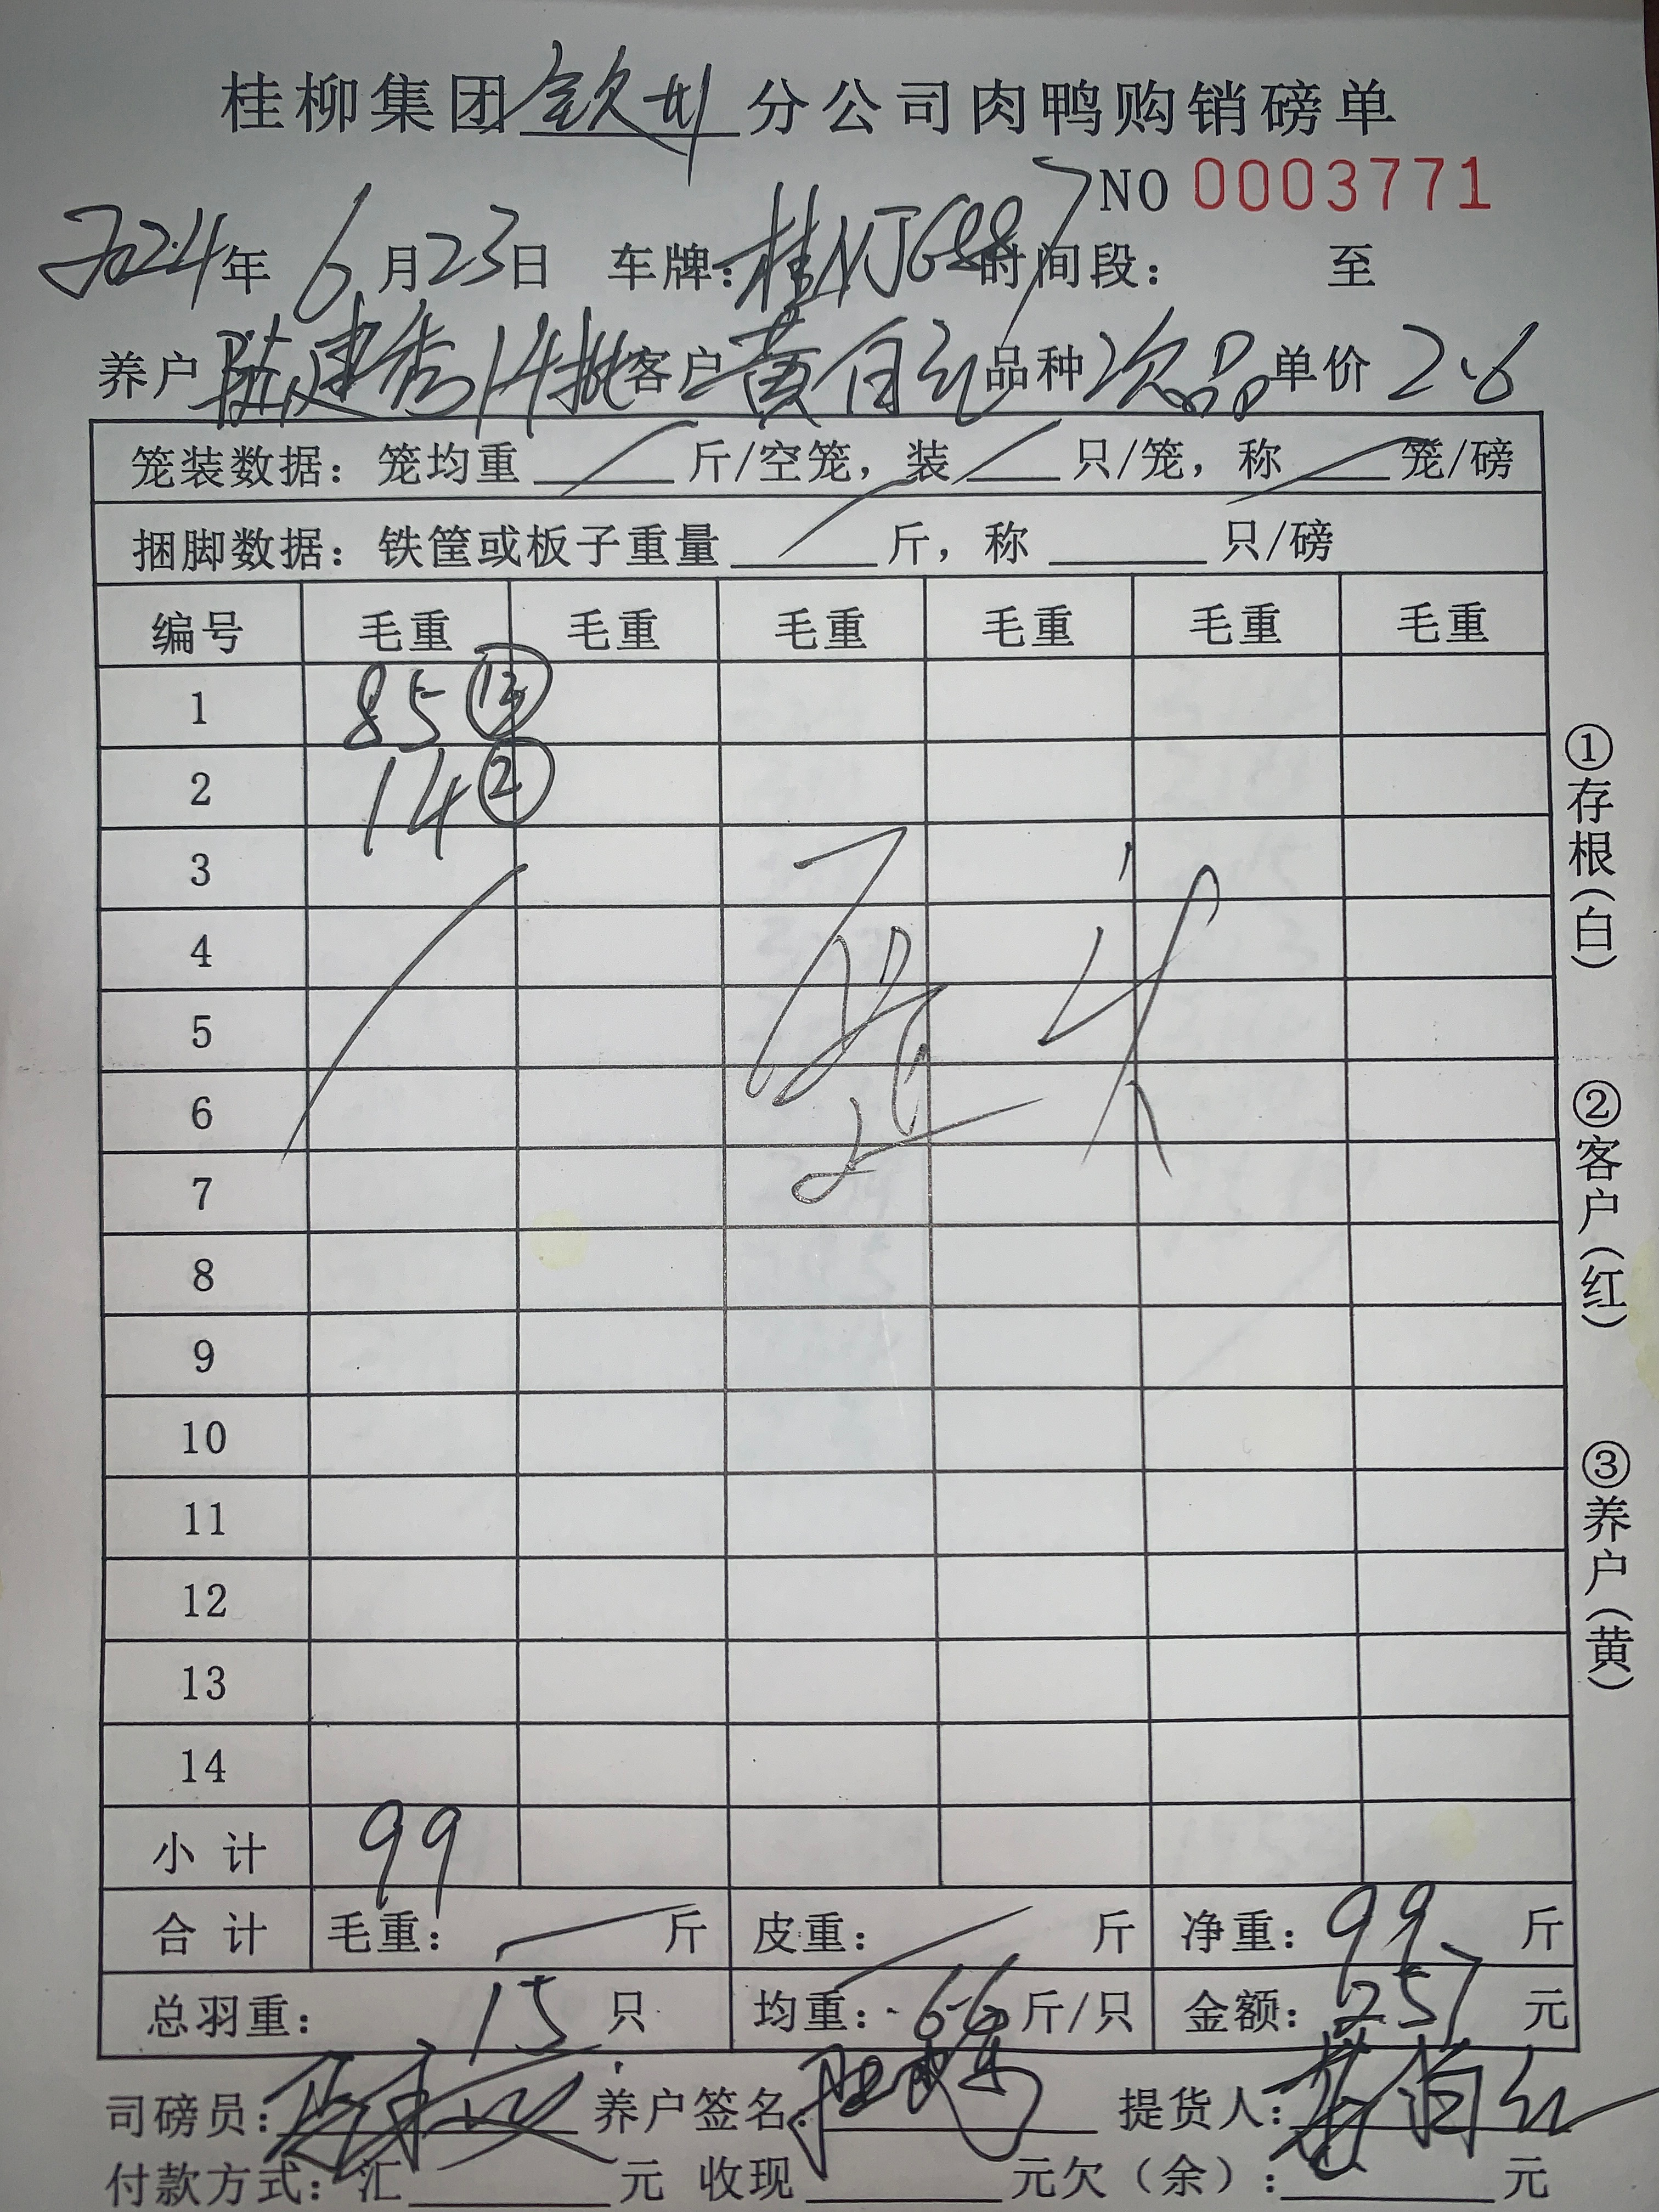 桂柳集团钦州分公司肉鸭购销磅单
NO 0003771
2024年6月23日 车牌:桂NJG887 时间段: 至
养户 陆建秀14批 客户 黄自红 品种 次品 单价 2.6
笼装数据: 笼均重 斤/空笼, 装 只/笼, 称 笼/磅
捆脚数据: 铁筐或板子重量 斤, 称 只/磅
编号 毛重 毛重 毛重 毛重 毛重 毛重
1 85 ⑬
2 14 ②
3
4
5
6
7
8
9
10
11
12
13
14
小计 99
合计 毛重: 斤 皮重: 斤 净重: 99 斤
总羽重: 15 只 均重: 6.6 斤/只 金额: 257 元
司磅员: 养户签名: 提货人:
付款方式: 汇 元 收现 元 欠(余): 元
①存根(白)
②客户(红)
③养户(黄)